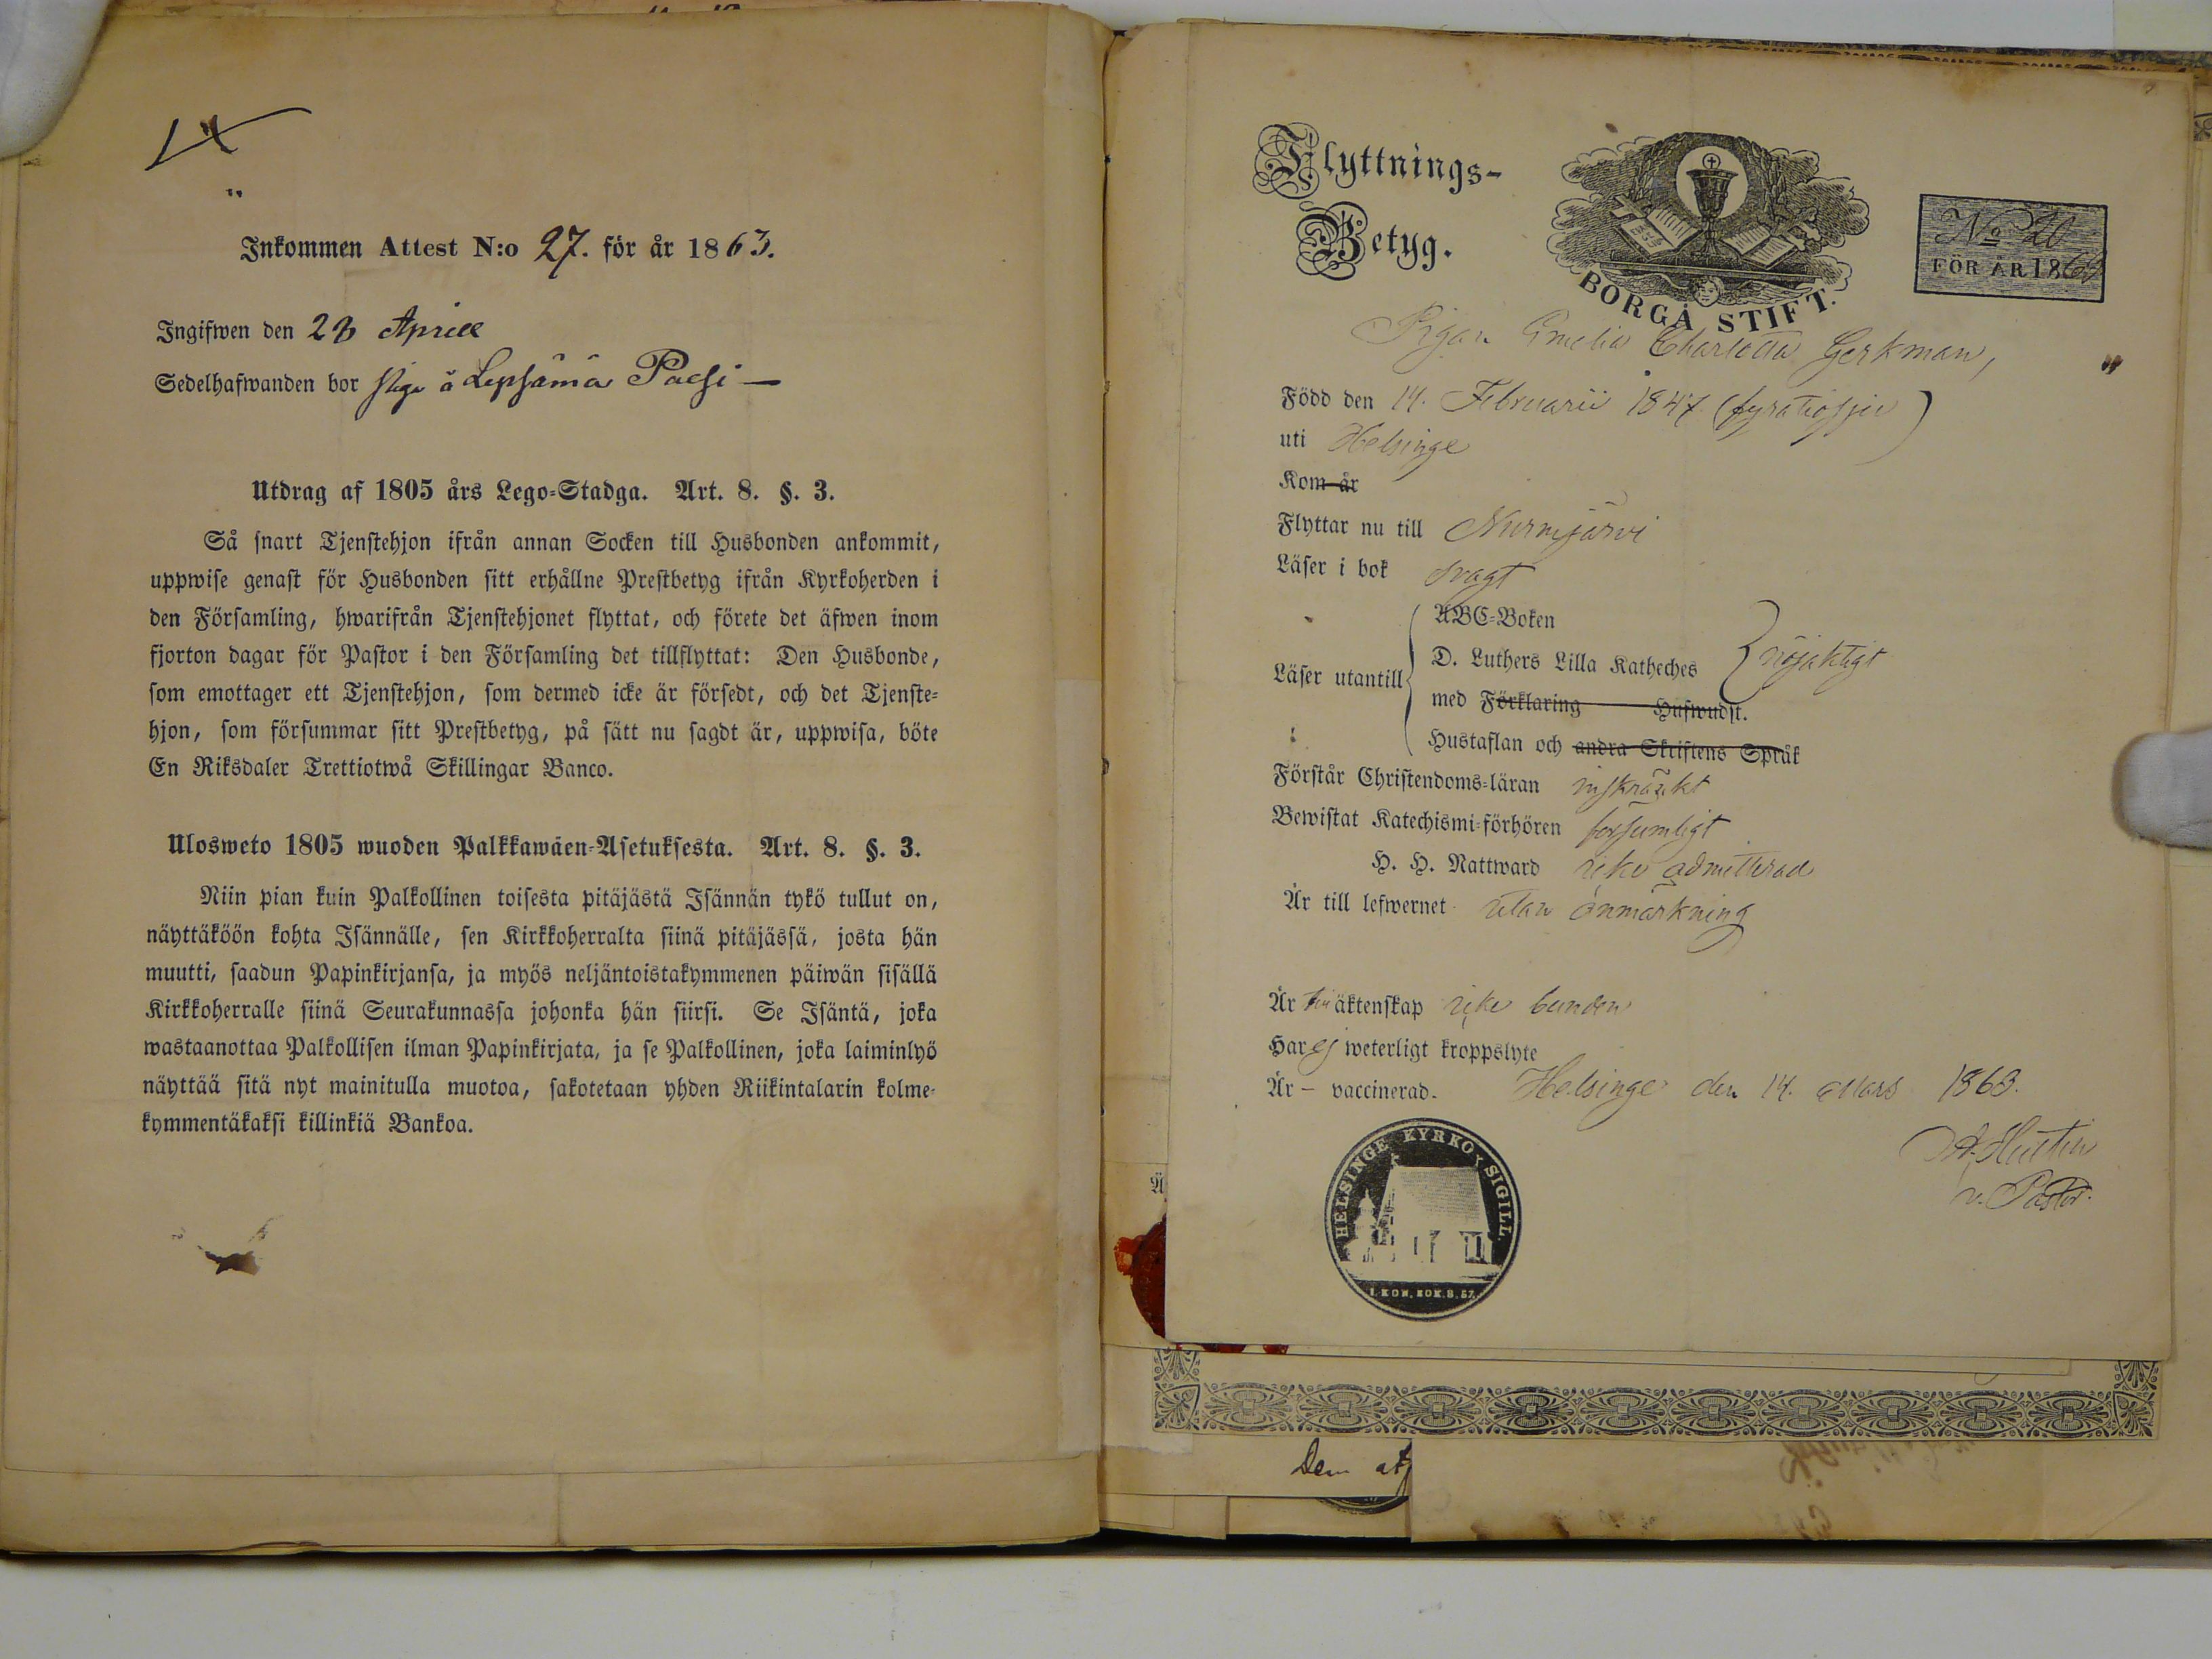 Inkommen Attest N:o 27. för år 1863.
Ingifwen den 23 Aprill
Sedelhafwanden bor piga å Lepsämä Pacsi —
Utdrag af 1805 års Lego-Stadga. Art. 8. §. 3.
Så snart Tjenstehjon ifrån annan Socken till Husbonden ankommit,
uppwise genast för Husbonden sitt erhållne Prestbetyg ifrån Kyrkoherden i
den Församling, hwarifrån Tjenstehjonet flyttat, och förete det äfwen inom
fjorton dagar för Pastor i den Församling det tillflyttat: Den Husbonde,
som emottager ett Tjenstehjon, som dermed icke är försedt, och det Tjenste-
hjon, som försummar sitt Prestbetyg, på sätt nu sagdt är, uppwisa, böte
En Riksdaler Trettiotwå Skillingar Banco.
Ulosweto 1805 wuoden Palkkawäen-Asetuksesta. Art. 8. §. 3.
Niin pian kuin Palkollinen toisesta pitäjästä Isännän tykö tullut on,
näyttäköön kohta Isännälle, sen Kirkkoherralta siinä pitäjässä, josta hän
muutti, saadun Papinkirjansa, ja myös neljäntoistakymmenen päiwän sisällä
Kirkkoherralle siinä Seurakunnassa johonka hän siirsi. Se Isäntä, joka
wastaanottaa Palkollisen ilman Papinkirjata, ja se Palkollinen, joka laiminlyö
näyttää sitä nyt mainitulla muotoa, sakotetaan yhden Riikintalarin kolme-
kymmentäkaksi killinkiä Bankoa.
Flyttnings-
Betyg.
BORGÅ STIFT.
No 20
FÖR ÅR 1863
Pigan Emelia Charlotta Gerkman,
Född den 14. Februarii 1847. (fyratiosju)
uti Helsinge
Kom år
Flyttar nu till Nurmijärvi
Läser i bok svagt
Läser utantill
ABC-Boken
D. Luthers Lilla Katheches nöjaktigt
med Förklaring Hufwudst.
Hustaflan och andra Skriftens Språk
Förstår Christendoms-läran inskränkt
Bewistat Katechismi-förhören försumligt
H. H. Nattward icke admitterad
Är till lefwernet utan anmärkning
Är till äktenskap icke bunden
Har ej weterligt kroppslyte
Är – vaccinerad. Helsinge den 14. Mars 1863.
v. Pastor.
HELSINGE KYRKO SIGILL.
1. KON. KOK. 8. 57.
Dem